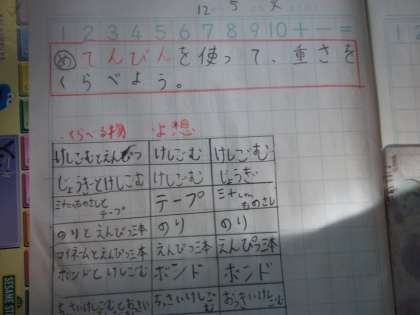 12 5
1 2 3 4 5 6 7 8 9 10 + - =
め てんびんを使って、重さを
くらべよう。
くらべる物 よ想
けしごむとえんぴつ けしごむ けしごむ
じょうぎとけしごむ けしごむ じょうぎ
ものさしとテープ テープ 三十cmものさし
のりとえんぴつ三本 のり のり
えんぴつ三本 えんぴつ三本 えんぴつ三本
ボンドとけしごむ ボンド ボンド
ちっさいけしごむ おっきいけしごむ
SESAME ST